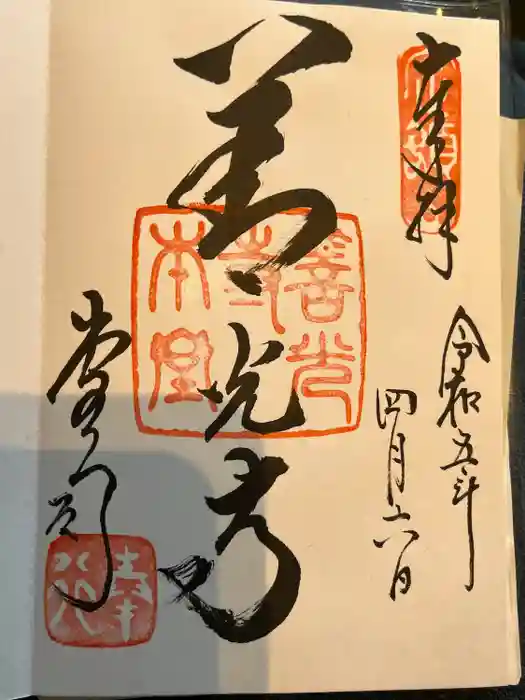 奉拝
令和五年
四月六日
善光寺
善光
寺
本堂
堂司